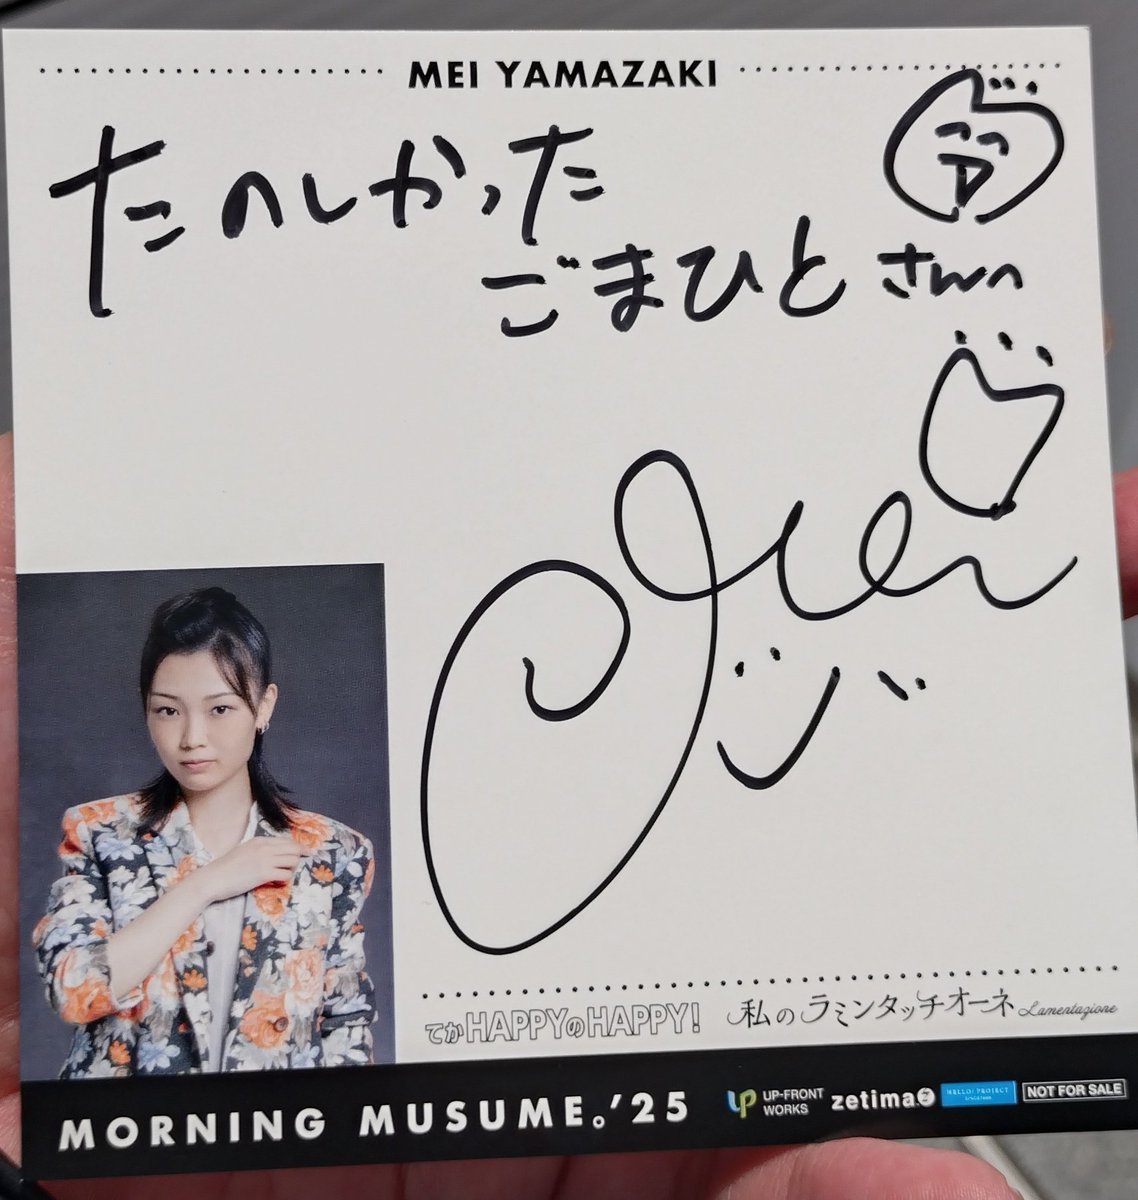 MEI YAMAZAKI
たのしかった
ごまひとさんへ
Mei
てかHAPPYのHAPPY!
私のラミンタッチオーネ Lamentazione
MORNING MUSUME。'25
UP-FRONT WORKS
zetima
HELLO! PROJECT
NOT FOR SALE